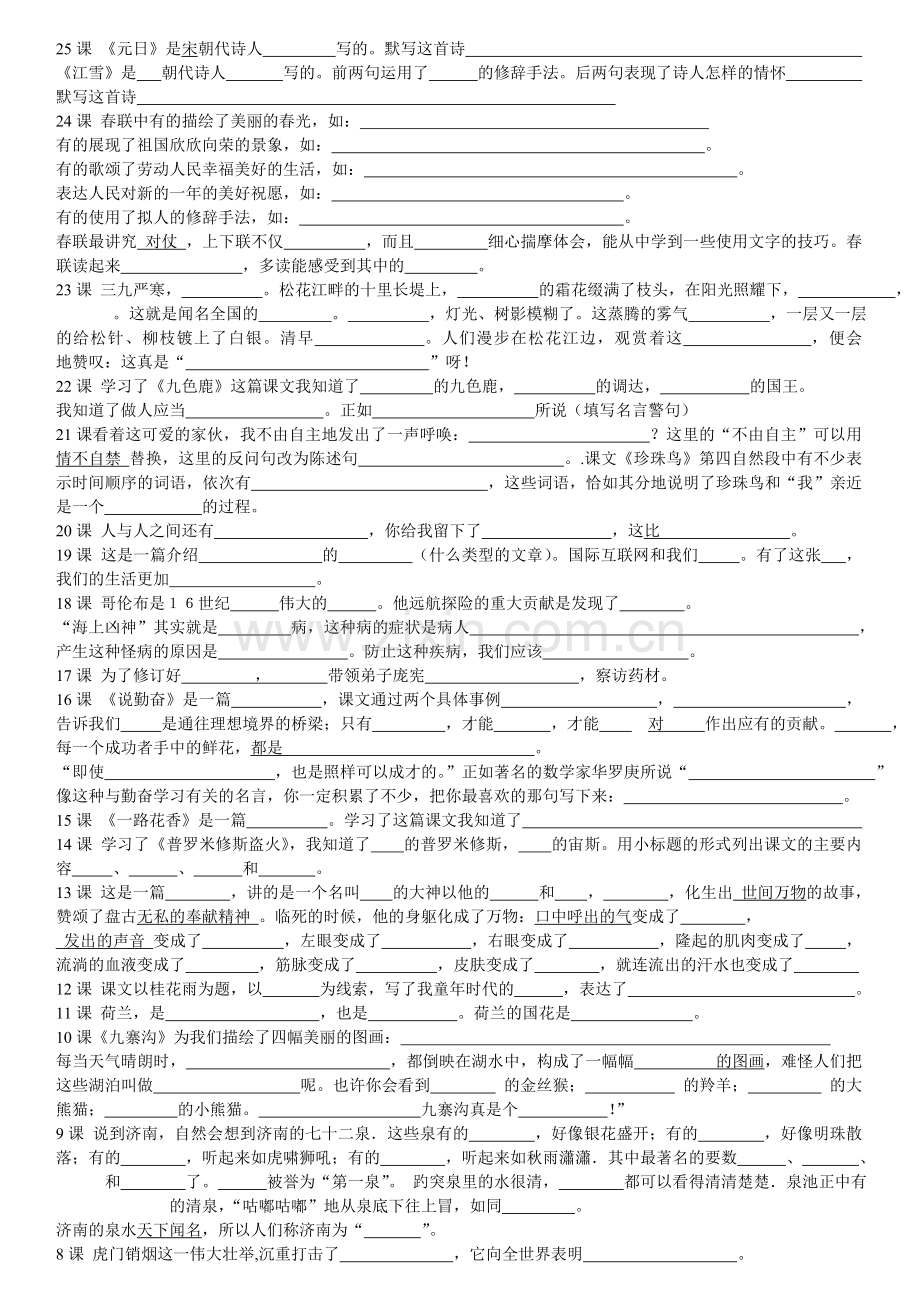 25 课 《元日》是宋朝代诗人_________写的。默写这首诗_________
《江雪》是___朝代诗人_______写的。前两句运用了______的修辞手法。后两句表现了诗人怎样的情怀_________
默写这首诗_________
24 课 春联中有的描绘了美丽的春光，如：_________
有的展现了祖国欣欣向荣的景象，如：_________。
有的歌颂了劳动人民幸福美好的生活，如：_________。
表达人民对新的一年的美好祝愿，如：_________。
有的使用了拟人的修辞手法，如：_________。
春联最讲究 对仗 ，上下联不仅_________，而且_________细心揣摩体会，能从中学到一些使用文字的技巧。春
联读起来_________，多读能感受到其中的_________。
23 课 三九严寒，_________。松花江畔的十里长堤上，_________的霜花缀满了枝头，在阳光照耀下，_________，
。这就是闻名全国的_________。_________，灯光、树影模糊了。这蒸腾的雾气_________，一层又一层
的给松针、柳枝镀上了白银。清早_________。人们漫步在松花江边，观赏着这_________，便会
地赞叹：这真是“_________”呀！
22 课 学习了《九色鹿》这篇课文我知道了_________的九色鹿，_________的调达，_________的国王。
我知道了做人应当_________。正如_________所说（填写名言警句）
21 课看着这可爱的家伙，我不由自主地发出了一声呼唤：_________？这里的“不由自主”可以用
情不自禁 替换，这里的反问句改为陈述句_________。.课文《珍珠鸟》第四自然段中有不少表
示时间顺序的词语，依次有_________，这些词语，恰如其分地说明了珍珠鸟和“我”亲近
是一个_________的过程。
20 课 人与人之间还有_________，你给我留下了_________，这比_________。
19 课 这是一篇介绍_________的_________（什么类型的文章）。国际互联网和我们_____。有了这张___，
我们的生活更加_________。
18 课 哥伦布是１６世纪______伟大的______。他远航探险的重大贡献是发现了________。
“海上凶神”其实就是_________病，这种病的症状是病人_________，
产生这种怪病的原因是_________。防止这种疾病，我们应该_________。
17 课 为了修订好_________，_________带领弟子庞宪_________，察访药材。
16 课 《说勤奋》是一篇_________，课文通过两个具体事例_________，_________，
告诉我们_____是通往理想境界的桥梁；只有_________，才能_______，才能____ 对_____作出应有的贡献。_______，
每一个成功者手中的鲜花，都是_________。
“即使_________，也是照样可以成才的。”正如著名的数学家华罗庚所说“_________”
像这种与勤奋学习有关的名言，你一定积累了不少，把你最喜欢的那句写下来：_________。
15 课 《一路花香》是一篇_________。学习了这篇课文我知道了_________
14 课 学习了《普罗米修斯盗火》，我知道了____的普罗米修斯，____的宙斯。用小标题的形式列出课文的主要内
容_____、______、________和_______。
13 课 这是一篇________，讲的是一个名叫____的大神以他的______和____，________，化生出 世间万物的故事，
赞颂了盘古无私的奉献精神 。临死的时候，他的身躯化成了万物：口中呼出的气变成了________，
发出的声音 变成了_________，左眼变成了_________，右眼变成了_________，隆起的肌肉变成了_____，
流淌的血液变成了_________，筋脉变成了_________，皮肤变成了________，就连流出的汗水也变成了________
12 课 课文以桂花雨为题，以_______为线索，写了我童年时代的______，表达了_________。
11 课 荷兰，是_________，也是_________。荷兰的国花是_________。
10 课《九寨沟》为我们描绘了四幅美丽的图画：_________
每当天气晴朗时，_________，都倒映在湖水中，构成了一幅幅_________的图画，难怪人们把
这些湖泊叫做_________呢。也许你会看到________ 的金丝猴；_________ 的羚羊；_________ 的大
熊猫；_________的小熊猫。_________九寨沟真是个_________！”
9 课 说到济南，自然会想到济南的七十二泉．这些泉有的________，好像银花盛开；有的________，好像明珠散
落；有的________，听起来如虎啸狮吼；有的________，听起来如秋雨瀟瀟．其中最著名的要数______、_______、
和________了。______被誉为“第一泉”。 趵突泉里的水很清，________都可以看得清清楚楚．泉池正中有
的清泉，“咕嘟咕嘟”地从泉底下往上冒，如同_________。
济南的泉水天下闻名，所以人们称济南为“_______”。
8 课 虎门销烟这一伟大壮举,沉重打击了_________，它向全世界表明_________。
www.zixin.com.cn